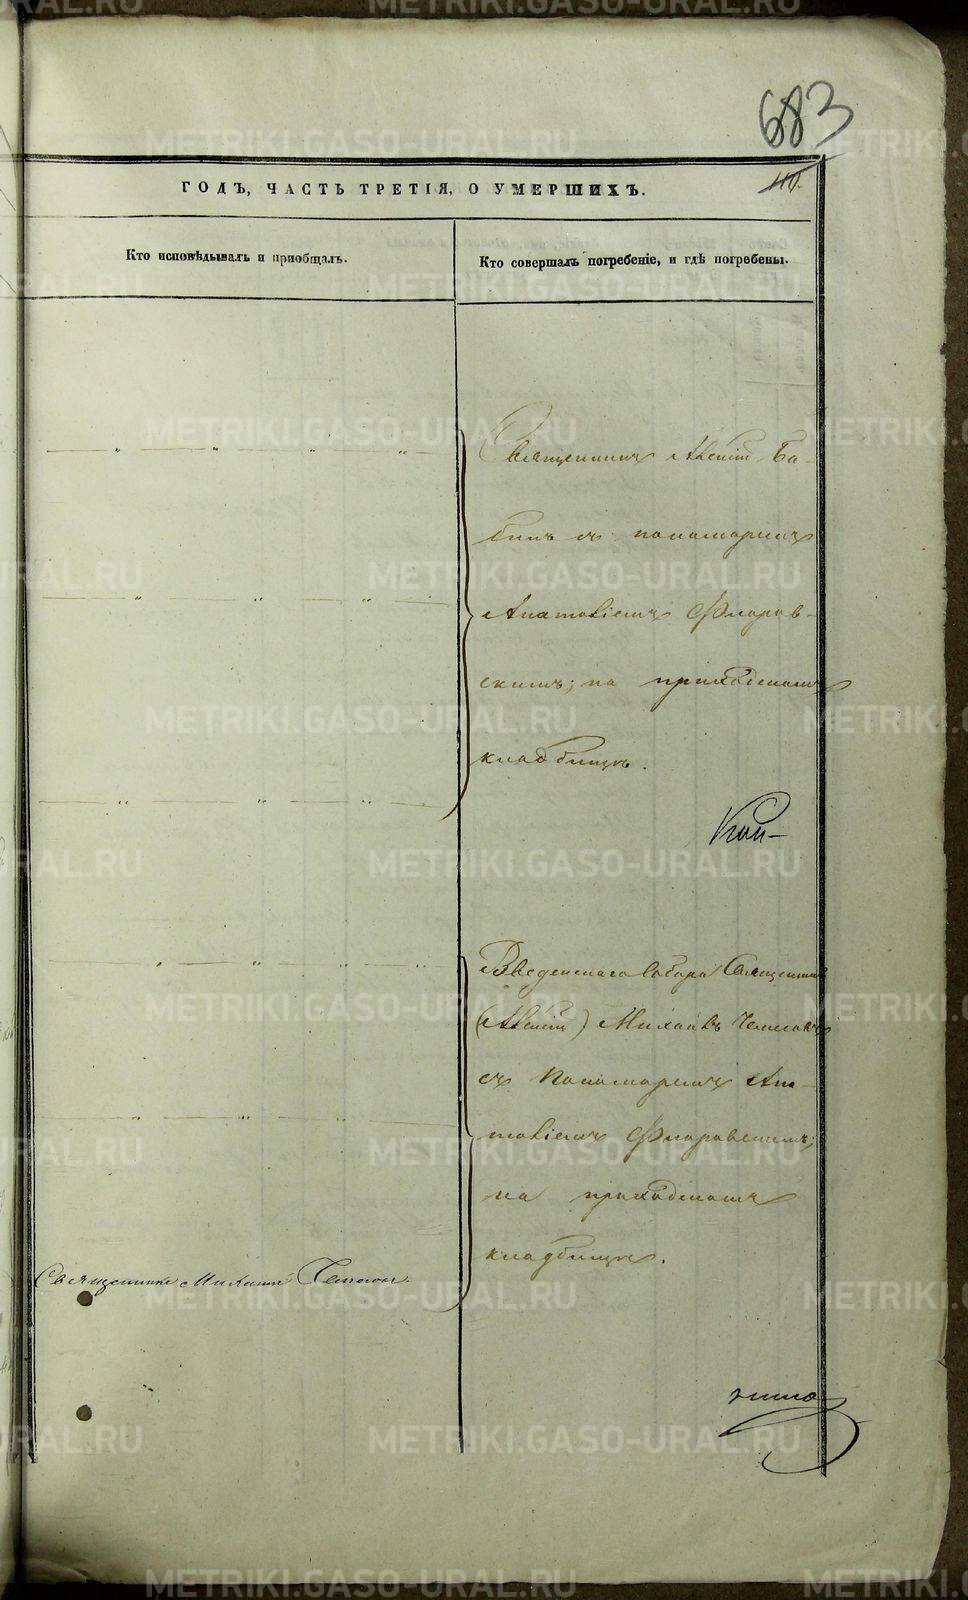 683
110.
ГОДЪ, ЧАСТЬ ТРЕТІЯ, О УМЕРШИХЪ.
Кто исповѣдывалъ и приобщалъ.
Кто совершалъ погребеніе, и гдѣ погребены.
Священникъ Алексій Ба-
бинъ съ пономаремъ
Анатоліемъ Флоров-
скимъ; на приходскомъ
кладбищѣ.
Введенскаго Собора Священникъ
(Алексій) Михаилъ
съ Пономаремъ Ана-
толіемъ Флоровскимъ;
на приходскомъ
кладбищѣ.
Священникъ Михаилъ
METRIKI.GASO-URAL.RU